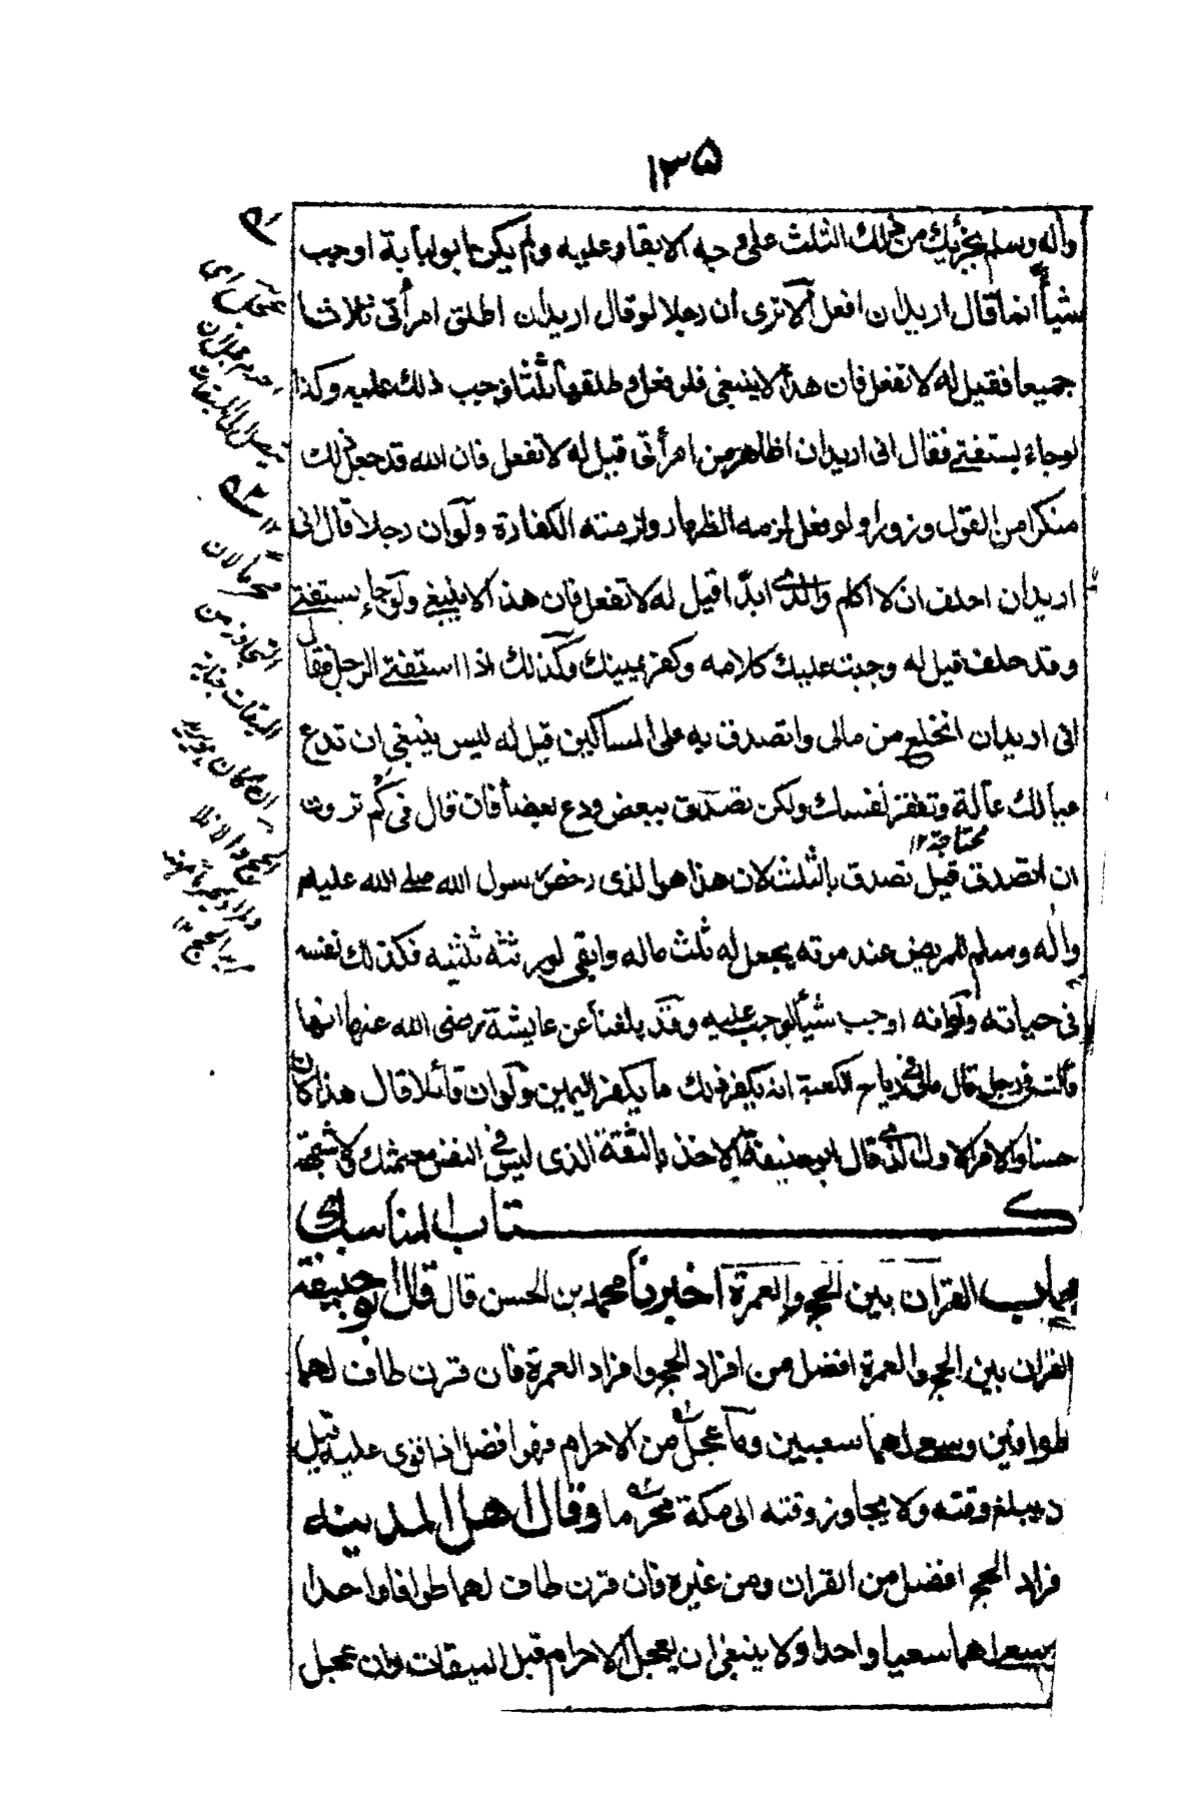 ۱۳۵
وآله وسلم يجزيك من ذلك الثلث على وجه الابقاء عليه ولم يكن ابو لبابة اوجب
شيأ انما قال اريد ان افعل ألا ترى ان رجلا لو قال اريد ان اطلق امرأتى ثلاثا
جميعا فقيل له لا تفعل فان هذا لا ينبغى فلو فعل وطلقها ثلثا وجب ذلك عليه وكذا
لو جاء يستفتى فقال انى اريد ان اظاهر من امرأتى قيل له لا تفعل فان الله قد جعل ذلك
منكرا من القول وزورا ولو فعل لزمه الظهار ولزمته الكفارة ولو ان رجلا قال انى
اريد ان احلف ان لا اكلم والدى ابدا قيل له لا تفعل فان هذا لا ينبغى ولو جاء يستفتى
وقد حلف قيل له وجب عليك كلامه وكفر يمينك وكذلك اذا استفتى الرجل فقال
انى اريد ان انخلع من مالى واتصدق به على المساكين قيل له ليس ينبغى ان تدع
عيالك عالة وتفقر نفسك ولكن تصدق ببعض ودع بعضا فان قال فى كم ترون
محتاجة ۱۲
ان اتصدق قيل تصدق بالثلث لان هذا هو الذى رخص رسول الله صلى الله عليه
وآله وسلم للمريض عند موته يجعل له ثلث ماله وابقى لورثته ثلثيه فكذلك نفسه
فى حياته ولو انه اوجب شيأ لوجب عليه وقد بلغنا عن عايشة رضى الله عنها انها
قالت فى رجل قال مالى فى رتاج الكعبة انه يكفر ذلك ما يكفر اليمين ولو ان قائلا قال هذا كان
حسنا والامر الاول الذى قال ابو حنيفة الاخذ بالثقة الذى ليس فى النفس معه شك ولا شبهة
كتاب المناسك
باب القران بين الحج والعمرة اخبرنا محمد بن الحسن قال قال ابو حنيفة
القران بين الحج والعمرة افضل من افراد الحج وافراد العمرة فان قرن طاف لهما
طوافين وسعى لهما سعيين وما عجل من الاحرام فهو افضل اذا قوى عليه قبل
يبلغ وقته ولا يجاوز وقته الى مكة محرما وقال اهل المدينة
فراد الحج افضل من القران ومن غيره فان قرن طاف لهما طوافا واحدا
يسعى لهما سعيا واحدا ولا ينبغى ان يعجل الاحرام قبل الميقات وان عجل
عجل اى
احرم قبل ان
يصل الى الميقات
۱۲
محرما لان
التجاوز من
الميقات
ان كان يريد
الحج